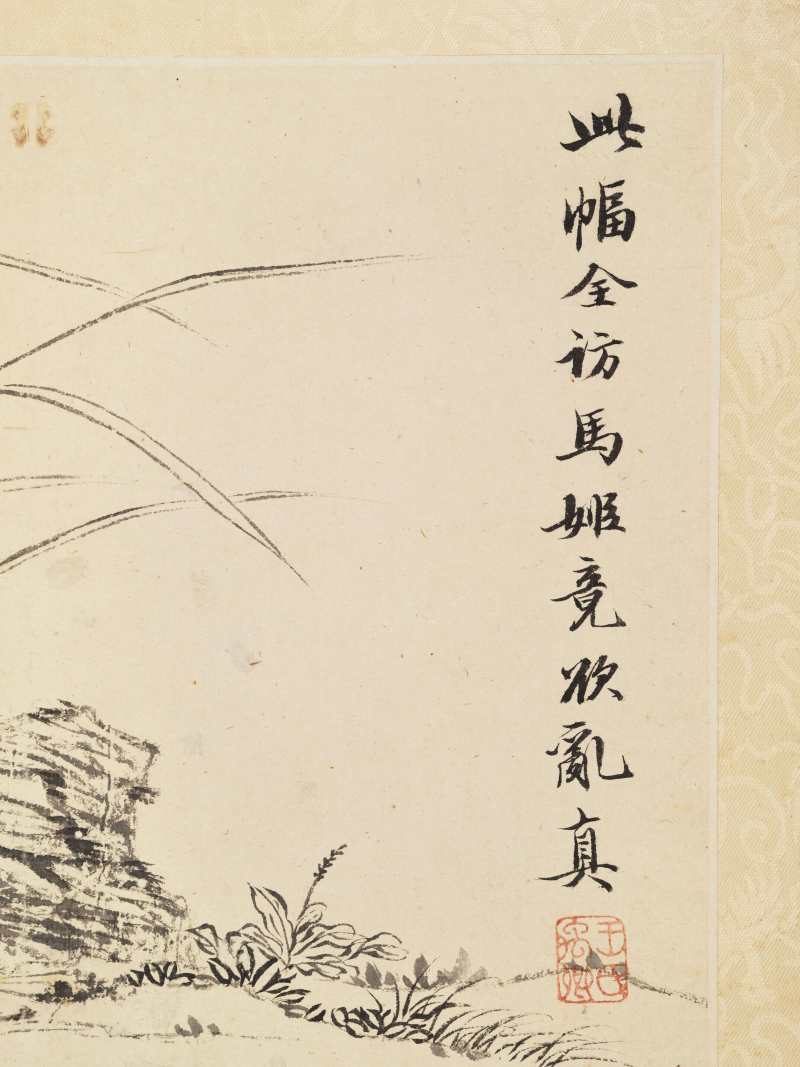 此幅全訪馬姬竟欲亂真